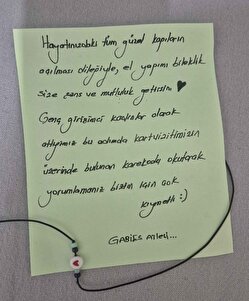 Hayatınızdaki tüm güzel kapıların
açılması dileğiyle, el yapımı bileklik
size şans ve mutluluk getirsin ♥
Genç girişimci kankalar olarak
attığımız bu adımda kartvizitimizin
üzerinde bulunan karekodu okutarak
yorumlamanız bizim için çok
kıymetli :)
GABIES Ailesi...